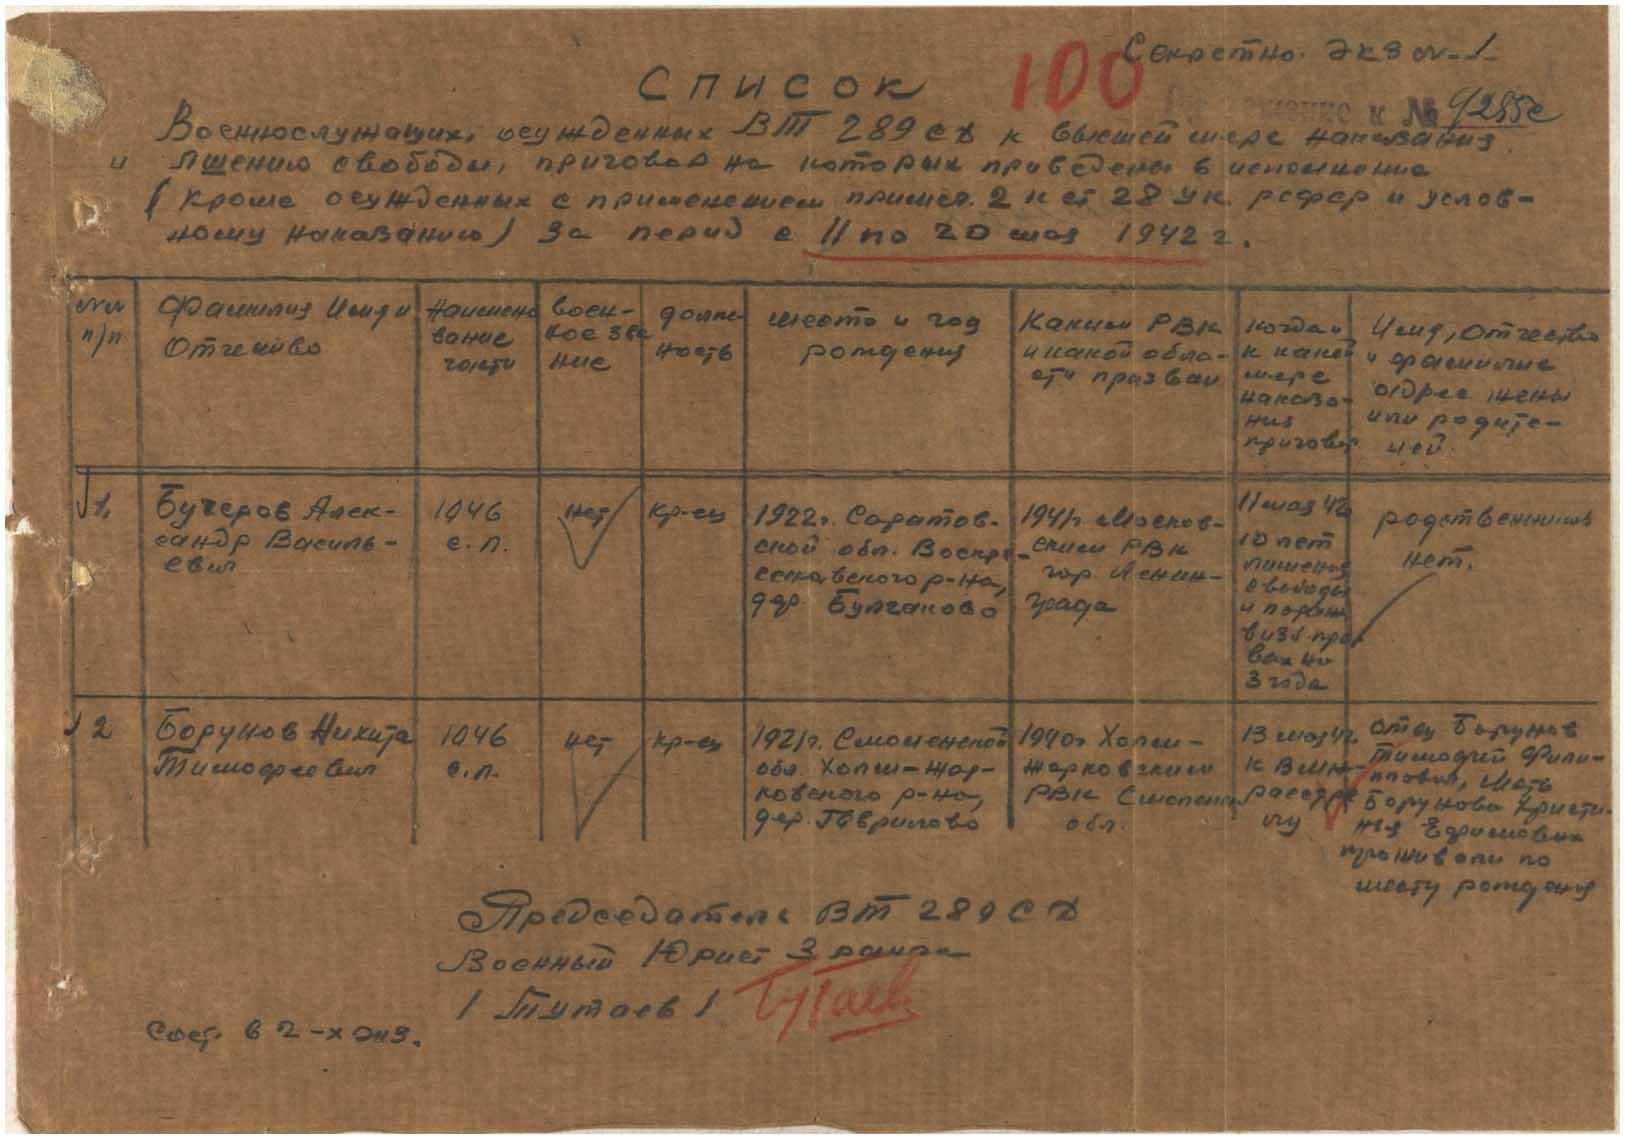 Секретно. Экз №-1
100
Список
к № 9285с
Военнослужащих, осужденных ВТ 289 сд к высшей мере наказания
и лшению свободы, приговора на которых приведены в исполнение
(кроме осужденных с применением примеч. 2 к ст 28 УК. РСФСР и услов-
ному наказанию) за период с 11 по 20 мая 1942 г.
№№ п/п
Фамилия Имя и Отчество
Наимено вание части
воен- ное зва ние
долж- ность
место и год рождения
Каким РВК и какой обла- сти призван
когда и к какой мере наказа- ния приговор
Имя, Отчество и фамилие адрес жены или родите- лей.
1.
Бучеров Алек-
сандр Василь-
евич
1046
с.п.
нет
кр-ец
1922г. Саратов-
ской обл. Воскре-
сенавского р-на,
дер. Булгаково
1941г Москов-
ским РВК
гор. Ленин-
града
11 мая 42
10 лет
лишения
свободы
и пораж
в изб. пра-
вах на
3 года
родственников
нет.
2
Борунов Никита
Тимофеевич
1046
с.п.
нет
кр-ец
1921г. Смоленской
обл. Холм-Жар-
ковского р-на,
дер. Гаврилово
1940г Холм-
жарковским
РВК Смоленс
обл.
13 мая 42
к ВМН-
расстре
лу
отец Борунов
Тимофий Фили-
ппович, мать
Борунова Кристи-
ния Ефимовна
проживали по
месту рождения
Председатель ВТ 289 СД
Военный Юрист 3 ранга
/ Тутаев / Тутаев
Сост. в 2-х экз.